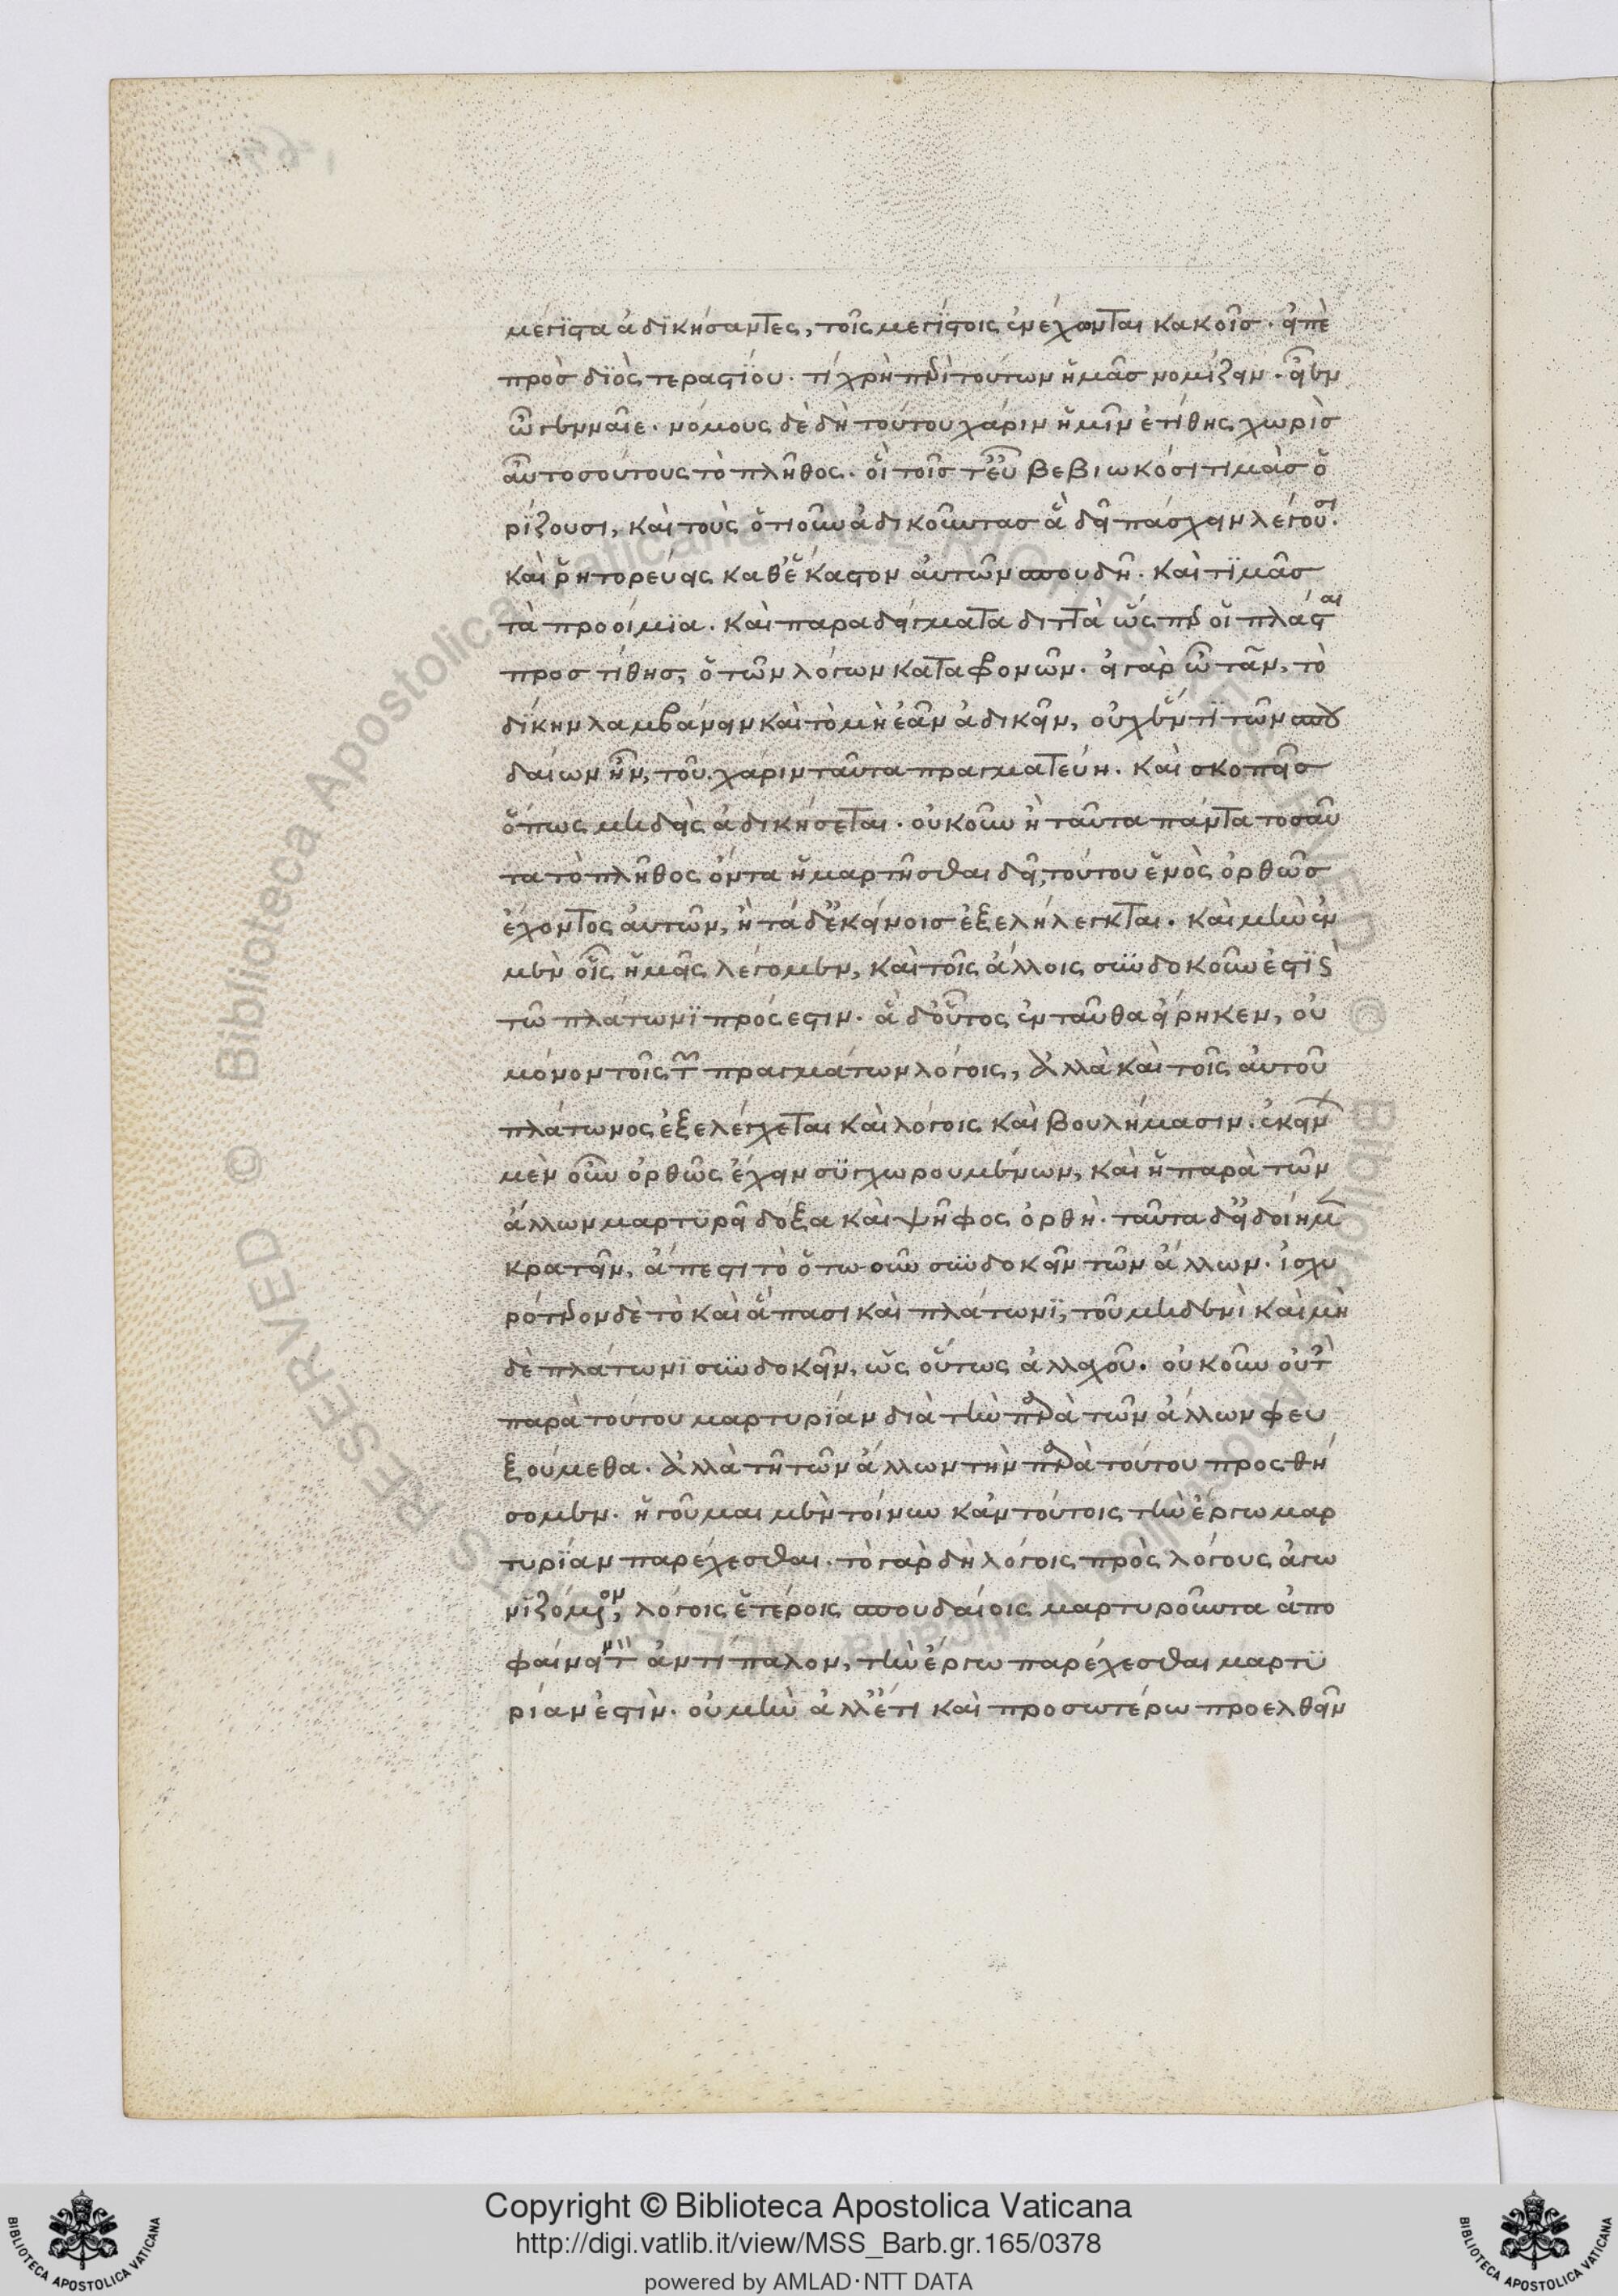 μέγϊστα ἀδϊκήσαντες, τοῖς μεγϊστοις ἐνέχονται κακοῖσ. εἰπὲ
πρὸσ δϊὸς τεραστϊου. τί χρὴ περὶ τούτων ἡμᾶσ νομίζειν. εἶεν
ὦ γενναῖε. νόμους δὲ δὴ τούτου χάριν ἡμῖν ἐτίθης χωρὶσ
αὖ τοσούτους τὸ πλῆθος. οἳ τοῖσ τ' εὖ βεβιωκόσι τιμὰσ ὁ
ρϊζουσι, καὶ τοὺς ὁτιοῦν ἀδικοῦντασ ἃ δεῖ πάσχειν λέγουσι.
καὶ ῥητορεύεις καθ' ἕκαστον αὐτῶν σπουδῆ. καὶ τϊμᾶσ
τὰ προοίμϊα. καὶ παραδείγματα διττὰ ὥς περ οἱ πλάσται
προστίθησ, ὁ τῶν λόγων καταφρονῶν. εἰ γὰρ ὦ τᾶν, τὸ
δϊκην λαμβάνειν καὶ τὸ μὴ ἐᾶν ἀδικεῖν, οὐχ ἕν τϊ τῶν σπου
δαίων ἦν, τοῦ χάριν ταῦτα πραγματεύη. καὶ σκοπεῖσ
ὅπως μηδεὶς ἀδικήσεται. οὐκοῦν ἢ ταῦτα πάντα τοσαῦ
τα τὸ πλῆθος ὄντα ἡμαρτῆσθαι δεῖ, τούτου ἑνὸς ὀρθῶσ
ἔχοντος αὐτῶν, ἢ τά δ' ἐκείνοισ ἐξελήλεγκται. καὶ μὴν ἐν
μὲν οἷς ἡμεῖς λέγομεν, καὶ τοῖς ἄλλοις συνδοκοῦν ἐστὶ καὶ
τῶ πλάτωνϊ πρός εστιν. ἃ δ' οὗτος ἐνταῦθα εἴρηκεν, οὐ
μόνον τοῖς τῶν πραγμάτων λόγοις, ἀλλὰ καὶ τοῖς αὐτοῦ
πλάτωνος ἐξελέγχεται καὶ λόγοις καὶ βουλήμασιν. ἐκείνων
μὲν οὖν ὀρθῶς ἔχειν συγχωρουμένων, καὶ ἡ παρὰ τῶν
ἄλλων μαρτυρεῖ δόξα καὶ ψῆφος ὀρθή. ταῦτα δ' εἰ δοίημεν
κρατεῖν, ἄπεστι τὸ ὅτω οὖν συνδοκεῖν τῶν ἄλλων. ἰσχυ
ρότερον δὲ τὸ καὶ ἅπασι καὶ πλάτωνϊ, τοῦ μηδενὶ καὶ μη
δὲ πλάτωνϊ συνδοκεῖν, ὡς οὕτως ἀλλαχοῦ. οὐκοῦν οὐ τὴν
παρὰ τούτου μαρτυρίαν διὰ τὴν παρὰ τῶν ἄλλων φευ
ξούμεθα. ἀλλὰ τῆ τῶν ἄλλων τὴν παρὰ τούτου προς θή
σομεν. ἡγοῦμαι μὲν τοίνυν κἀν τούτοις τὴν ἔργω μαρ
τυρϊαν παρέχεσθαι. τὸ γὰρ δὴ λόγοις πρὸς λόγους ἀγω
νϊζόμενον, λόγοις ἑτέροις σπουδαίοις μαρτυροῦντα ἀπο
φαίνειν τὸν ἀντίπαλον, τὴν ἔργω παρέχεσθαι μαρτυ
ρίαν ἐστὶν. οὐ μὴν ἀλλ' ἔτι καὶ προσωτέρω προελθεῖν
Copyright © Biblioteca Apostolica Vaticana
http://digi.vatlib.it/view/MSS_Barb.gr.165/0378
powered by AMLAD·NTT DATA